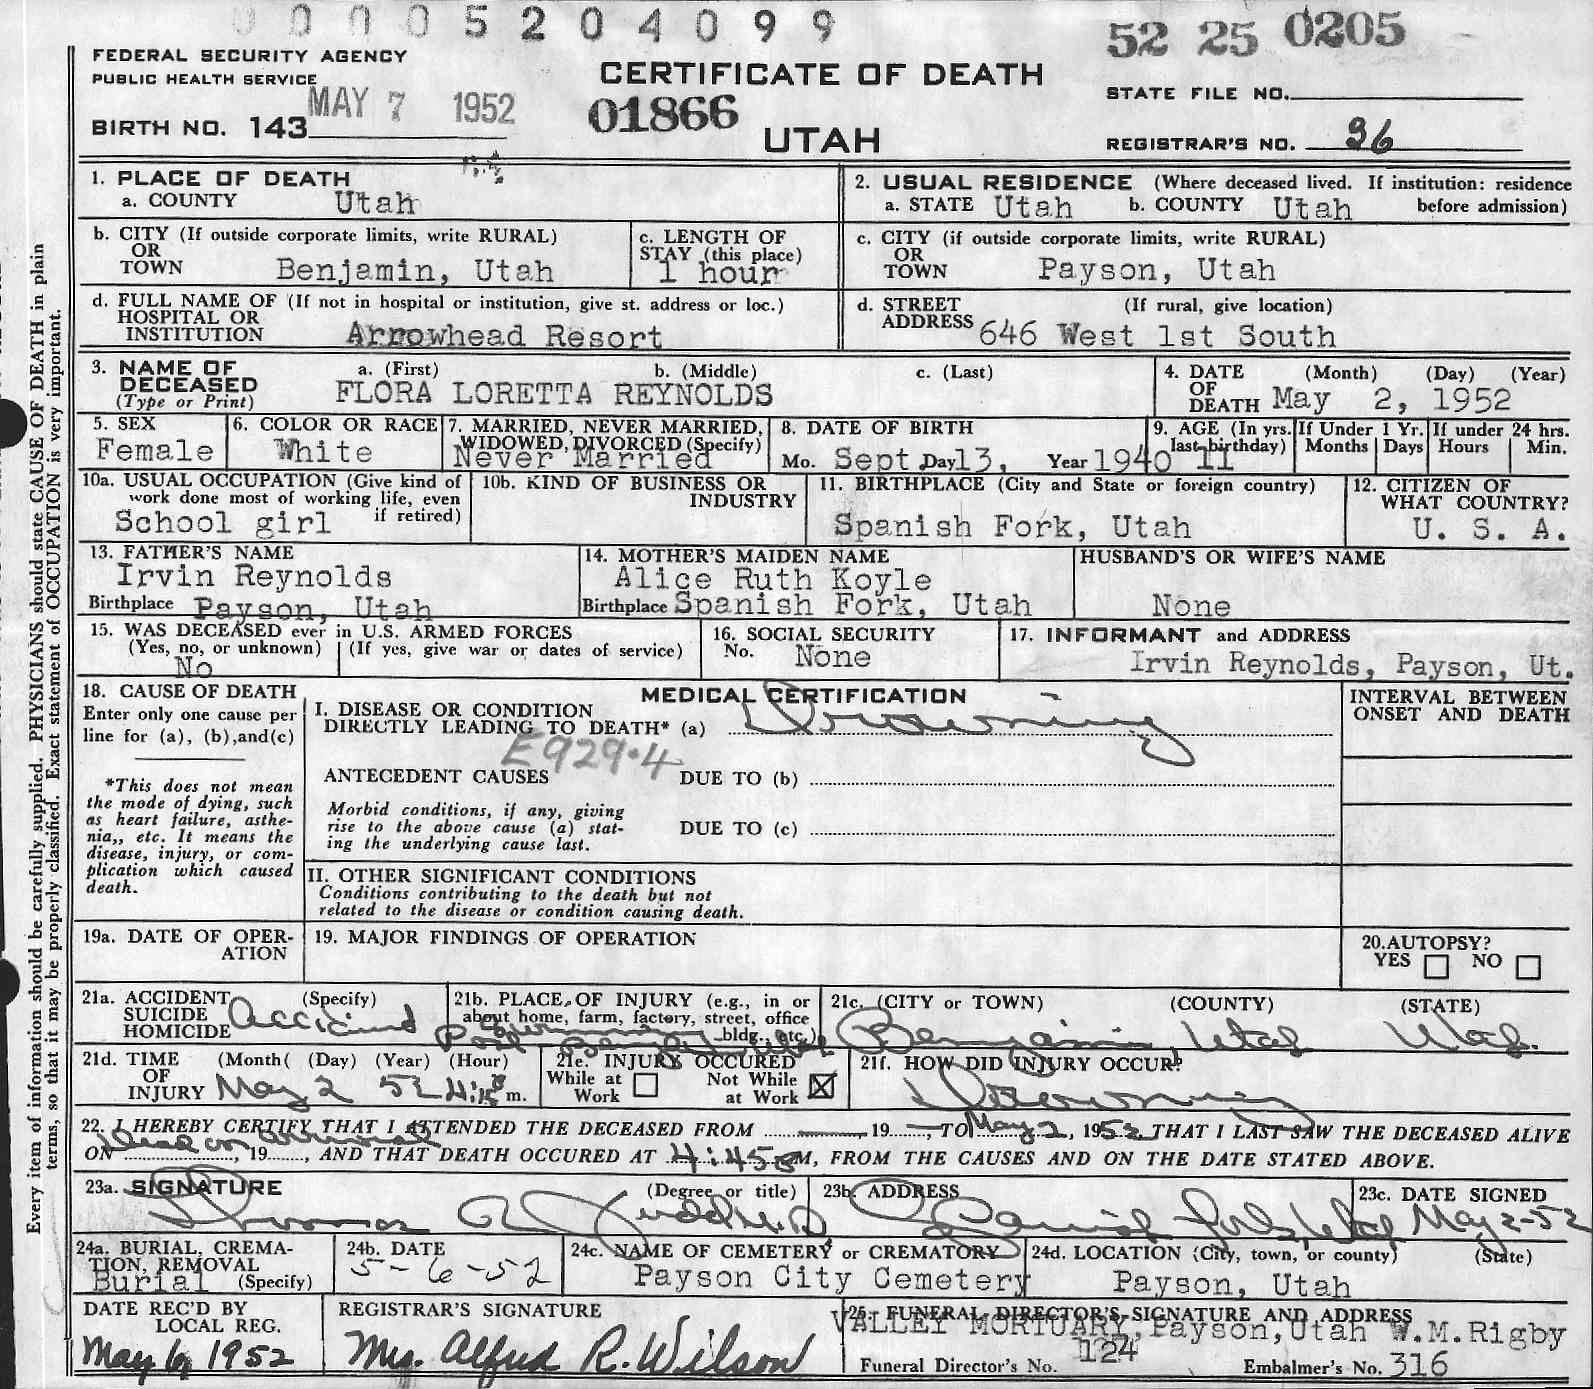 0 0 0 5 2 0 4 0 9 9
52 25 0205
FEDERAL SECURITY AGENCY
PUBLIC HEALTH SERVICE
CERTIFICATE OF DEATH
STATE FILE NO.
MAY 7 1952
01866
BIRTH NO. 143
UTAH
REGISTRAR'S NO. 96
1. PLACE OF DEATH
a. COUNTY Utah
2. USUAL RESIDENCE (Where deceased lived. If institution: residence
a. STATE Utah b. COUNTY Utah before admission)
b. CITY (If outside corporate limits, write RURAL)
OR
TOWN Benjamin, Utah
c. LENGTH OF
STAY (this place)
1 hour
c. CITY (if outside corporate limits, write RURAL)
OR
TOWN Payson, Utah
d. FULL NAME OF (If not in hospital or institution, give st. address or loc.)
HOSPITAL OR
INSTITUTION Arrowhead Resort
d. STREET (If rural, give location)
ADDRESS 646 West 1st South
3. NAME OF a. (First) b. (Middle) c. (Last)
DECEASED
(Type or Print) FLORA LORETTA REYNOLDS
4. DATE (Month) (Day) (Year)
OF
DEATH May 2, 1952
5. SEX
Female
6. COLOR OR RACE
White
7. MARRIED, NEVER MARRIED,
WIDOWED, DIVORCED (Specify)
Never Married
8. DATE OF BIRTH
Mo. Sept Day 13, Year 1940
9. AGE (In yrs.
last birthday)
11
If Under 1 Yr.
Months Days
If under 24 hrs.
Hours Min.
10a. USUAL OCCUPATION (Give kind of
work done most of working life, even
if retired)
School girl
10b. KIND OF BUSINESS OR
INDUSTRY
11. BIRTHPLACE (City and State or foreign country)
Spanish Fork, Utah
12. CITIZEN OF
WHAT COUNTRY?
U. S. A.
13. FATHER'S NAME
Irvin Reynolds
Birthplace Payson, Utah
14. MOTHER'S MAIDEN NAME
Alice Ruth Koyle
Birthplace Spanish Fork, Utah
HUSBAND'S OR WIFE'S NAME
None
15. WAS DECEASED ever in U.S. ARMED FORCES
(Yes, no, or unknown) (If yes, give war or dates of service)
No
16. SOCIAL SECURITY
No. None
17. INFORMANT and ADDRESS
Irvin Reynolds, Payson, Ut.
18. CAUSE OF DEATH
Enter only one cause per
line for (a), (b),and(c)
*This does not mean
the mode of dying, such
as heart failure, asthe-
nia,, etc. It means the
disease, injury, or com-
plication which caused
death.
MEDICAL CERTIFICATION
I. DISEASE OR CONDITION
DIRECTLY LEADING TO DEATH* (a) Drowning
E929.4
ANTECEDENT CAUSES DUE TO (b)
Morbid conditions, if any, giving
rise to the above cause (a) stat-
ing the underlying cause last.
DUE TO (c)
INTERVAL BETWEEN
ONSET AND DEATH
II. OTHER SIGNIFICANT CONDITIONS
Conditions contributing to the death but not
related to the disease or condition causing death.
19a. DATE OF OPER-
ATION
19. MAJOR FINDINGS OF OPERATION
20.AUTOPSY?
YES NO
21a. ACCIDENT (Specify)
SUICIDE
HOMICIDE Accident
21b. PLACE OF INJURY (e.g., in or
about home, farm, factory, street, office
bldg., etc.)
Swimming
Pool Benjamin, Utah
21c. (CITY or TOWN) (COUNTY) (STATE)
Benjamin, Utah Utah.
21d. TIME (Month( (Day) (Year) (Hour)
OF
INJURY May 2 52 m.
21e. INJURY OCCURED
While at Not While
Work at Work
21f. HOW DID INJURY OCCUR?
Drowning
22. I HEREBY CERTIFY THAT I ATTENDED THE DECEASED FROM 19 , TO May 2, 1952 THAT I LAST SAW THE DECEASED ALIVE
Dead on arrival
ON , 19 , AND THAT DEATH OCCURED AT 4:45 pM, FROM THE CAUSES AND ON THE DATE STATED ABOVE.
23a. SIGNATURE (Degree or title)
23b. ADDRESS
Spanish Fork, Utah
23c. DATE SIGNED
May 2-52
24a. BURIAL, CREMA-
TION, REMOVAL
Burial (Specify)
24b. DATE
5-6-52
24c. NAME OF CEMETERY or CREMATORY
Payson City Cemetery
24d. LOCATION (City, town, or county) (State)
Payson, Utah
DATE REC'D BY
LOCAL REG.
May 6, 1952
REGISTRAR'S SIGNATURE
Mrs. Alfred R. Wilson
25. FUNERAL DIRECTOR'S SIGNATURE AND ADDRESS
VALLEY MORTUARY, Payson, Utah W.M.Rigby
Funeral Director's No. 124 Embalmer's No. 316
Every item of information should be carefully supplied. PHYSICIANS should state CAUSE OF DEATH in plain
terms, so that it may be properly classified. Exact statement of OCCUPATION is very important.